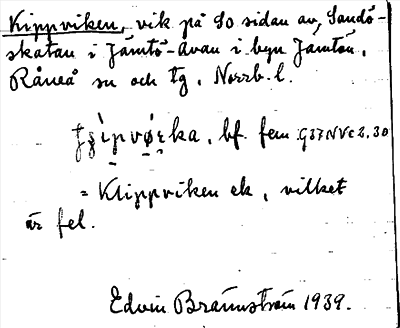 Kippviken, vik på So sidan av, Sandö-
skatan i Jämtö-Avan i byn Jämtön,
Råneå sn och tg, Norrb. l.
bf. fem. G37NVc2,30
= Klippviken ek, vilket
är fel.
Edvin Brännström 1939.